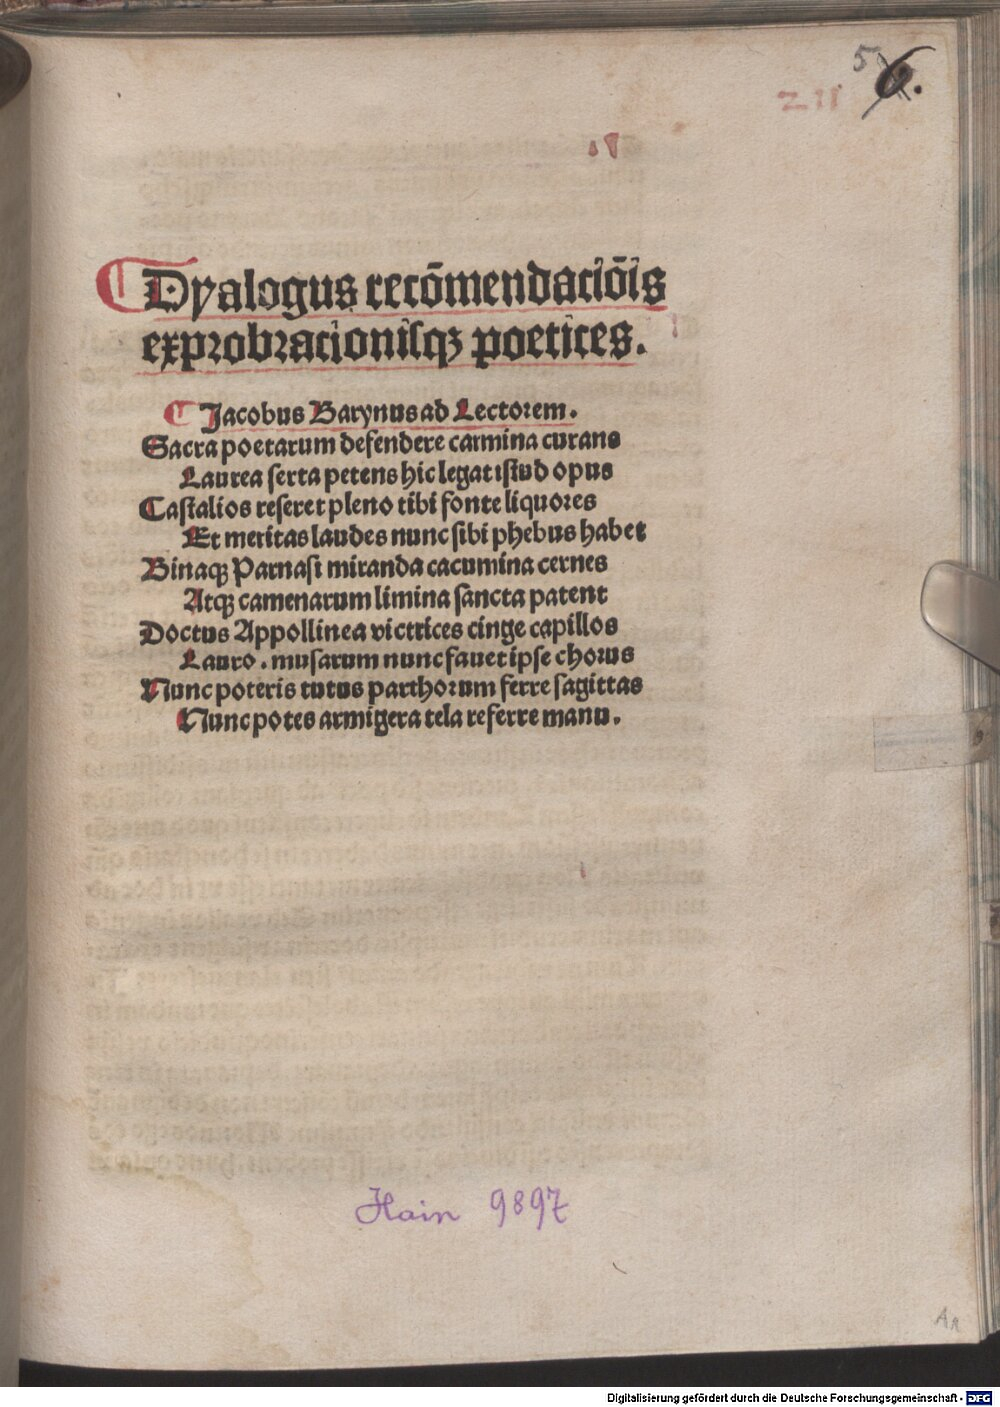 5 6.
Z11
Dyalogus recõmendaciõis
exprobracionisqꝫ poetices.
Jacobus Barynus ad Lectorem.
Sacra poetarum defendere carmina curans
Laurea serta petens hic legat istud opus
Castalios reseret pleno tibi fonte liquores
Et meritas laudes nunc sibi phebus habet
Binaqꝫ Parnasi miranda cacumina cernes
Atqꝫ camenarum limina sancta patent
Doctus Appollinea victrices cinge capillos
Lauro. musarum nunc fauet ipse chorus
Nunc poteris tutus parthorum ferre sagittas
Nunc potes armigera tela referre manu.
Hain 9897
Digitalisierung gefördert durch die Deutsche Forschungsgemeinschaft - DFG